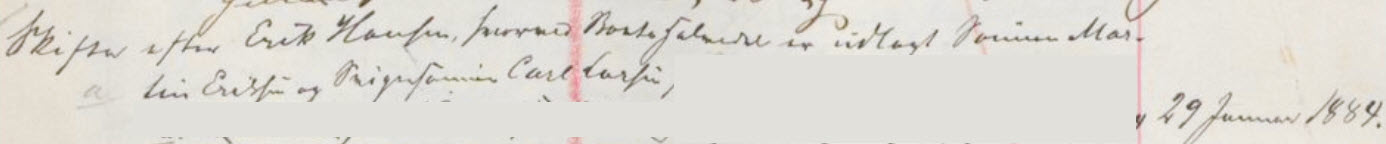 Skifte efter Erik Hansen, hvorved Boets Halvdel er udlagt Sønnen Mar-
tin Eriksen og Svigersønnen Carl Larsen,
29 Januar 1884.